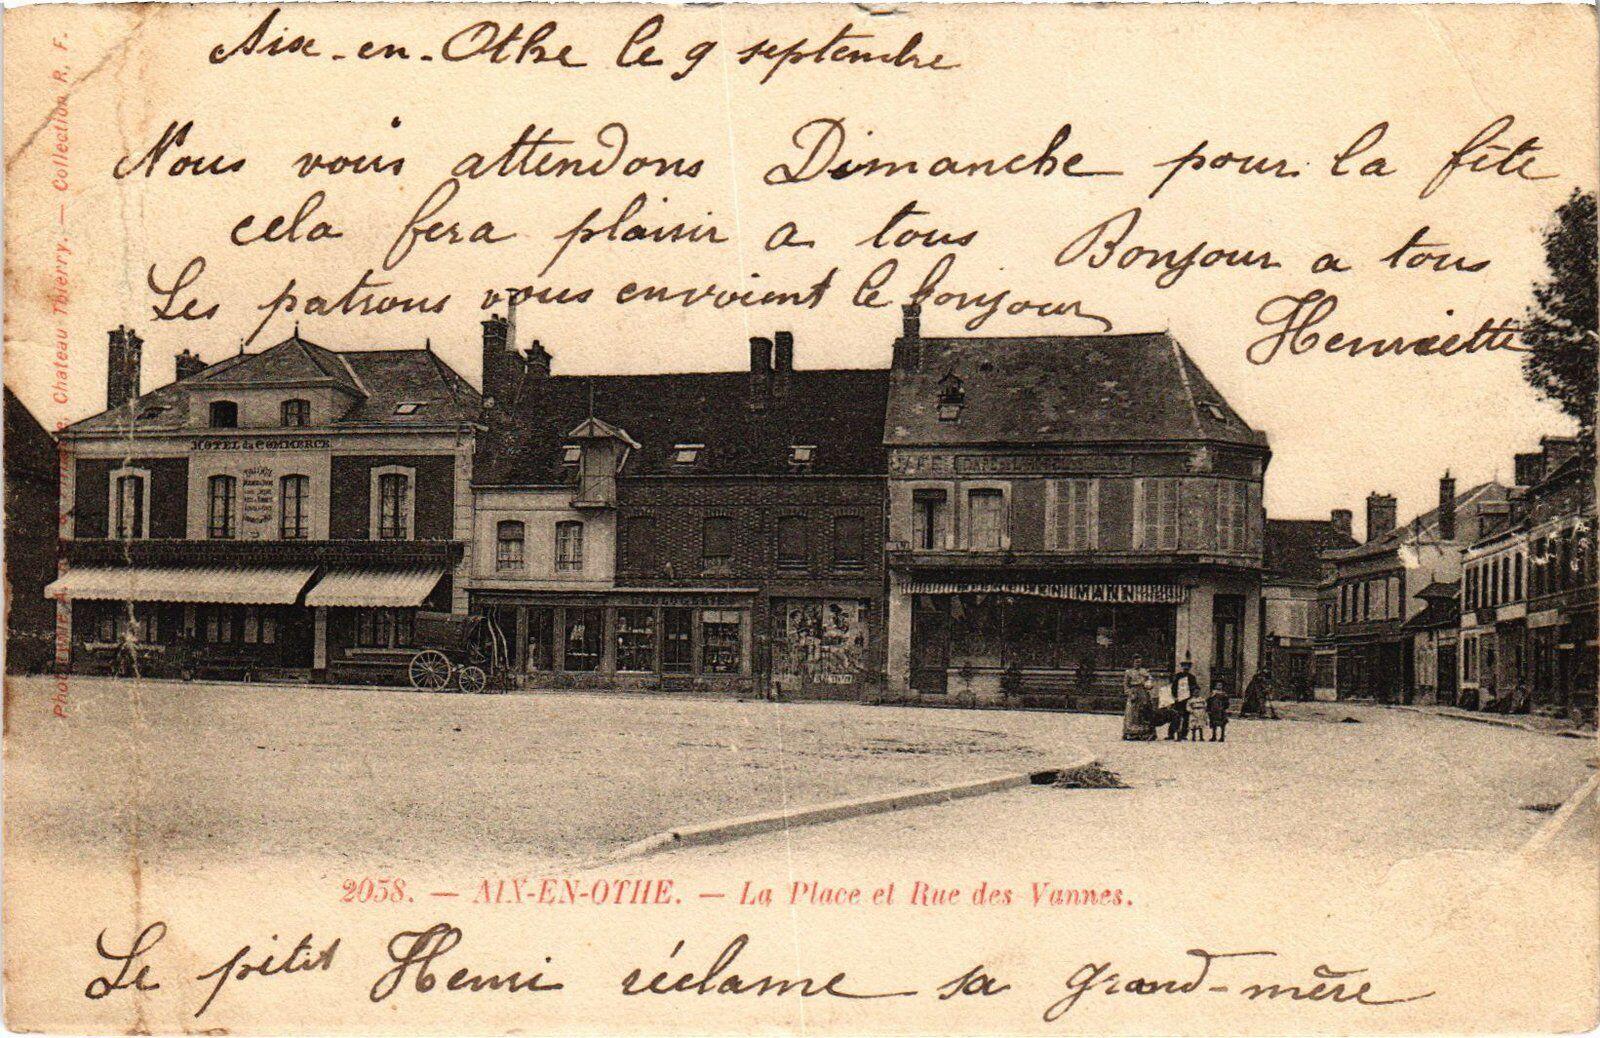 Aix-en-Othe le 9 septembre
Nous vous attendons Dimanche pour la fête
cela fera plaisir a tous Bonjour a tous
Les patrons vous envoient le bonjour
Henriette
HOTEL du COMMERCE
CAFE
HORLOGERIE
2058. — AIX-EN-OTHE. — La Place et Rue des Vannes.
Le pitit Henri réclame sa grand-mère
Château Thierry. — Collection R. F.